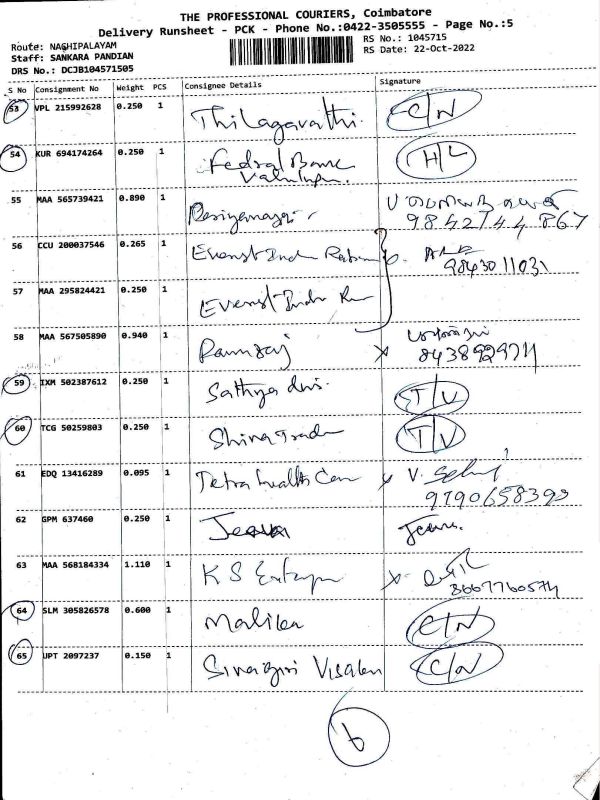 THE PROFESSIONAL COURIERS, Coimbatore
Delivery Runsheet - PCK - Phone No.:0422-3505555 - Page No.:5
Route: NAGHIPALAYAM
RS No.: 1045715
Staff: SANKARA PANDIAN
RS Date: 22-Oct-2022
DRS No.: DCJB104571505
S No Consignment No Weight PCS Consignee Details Signature
53 VPL 215992628 0.250 1 Thilagavathi. C/N
54 KUR 694174264 0.250 1 Fedral Bank H/L
55 MAA 565739421 0.890 1
9842744867
56 CCU 200037546 0.265 1 Everest Indu
9843011031
57 MAA 295824421 0.250 1 Everest Indu
58 MAA 567505890 0.940 1 Ramraj
59 IXM 502387612 0.250 1 Sathya T/V
60 TCG 50259803 0.250 1 Shiva Trade T/V
61 EDQ 13416289 0.095 1 Tetra Health Care V.
9790658393
62 GPM 637460 0.250 1
63 MAA 568184334 1.110 1 K S
64 SLM 305826578 0.600 1 Malika C/N
65 UPT 2097237 0.150 1 C/N
6